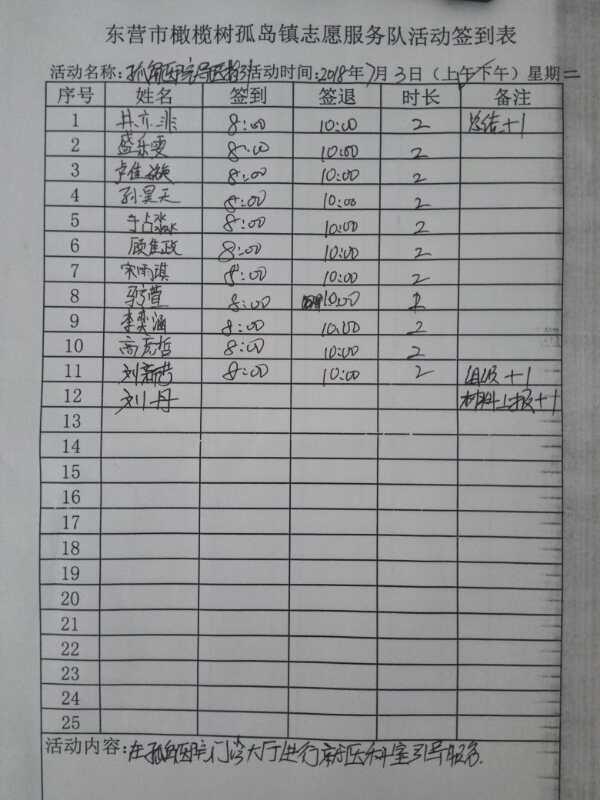 东营市橄榄树孤岛镇志愿服务队活动签到表
活动名称:孤岛医院导医 活动时间:2018年7月3日(上午下午)星期二
序号 姓名 签到 签退 时长 备注
1 井亦非 8:00 10:00 2 总结+1
2 盛乐雯 8:00 10:00 2
3 卢佳 8:00 10:00 2
4 孙昊天 8:00 10:00 2
5 于占淼 8:00 10:00 2
6 顾隹政 8:00 10:00 2
7 宋雨琪 8:00 10:00 2
8 萱 8:00 10:00 2
9 李奕涵 8:00 10:00 2
10 高彦哲 8:00 10:00 2
11 刘新营 8:00 10:00 2 组织+1
12 刘丹 材料上报+1
13
14
15
16
17
18
19
20
21
22
23
24
25
活动内容:在孤岛医院门诊大厅进行就医科室引导服务.